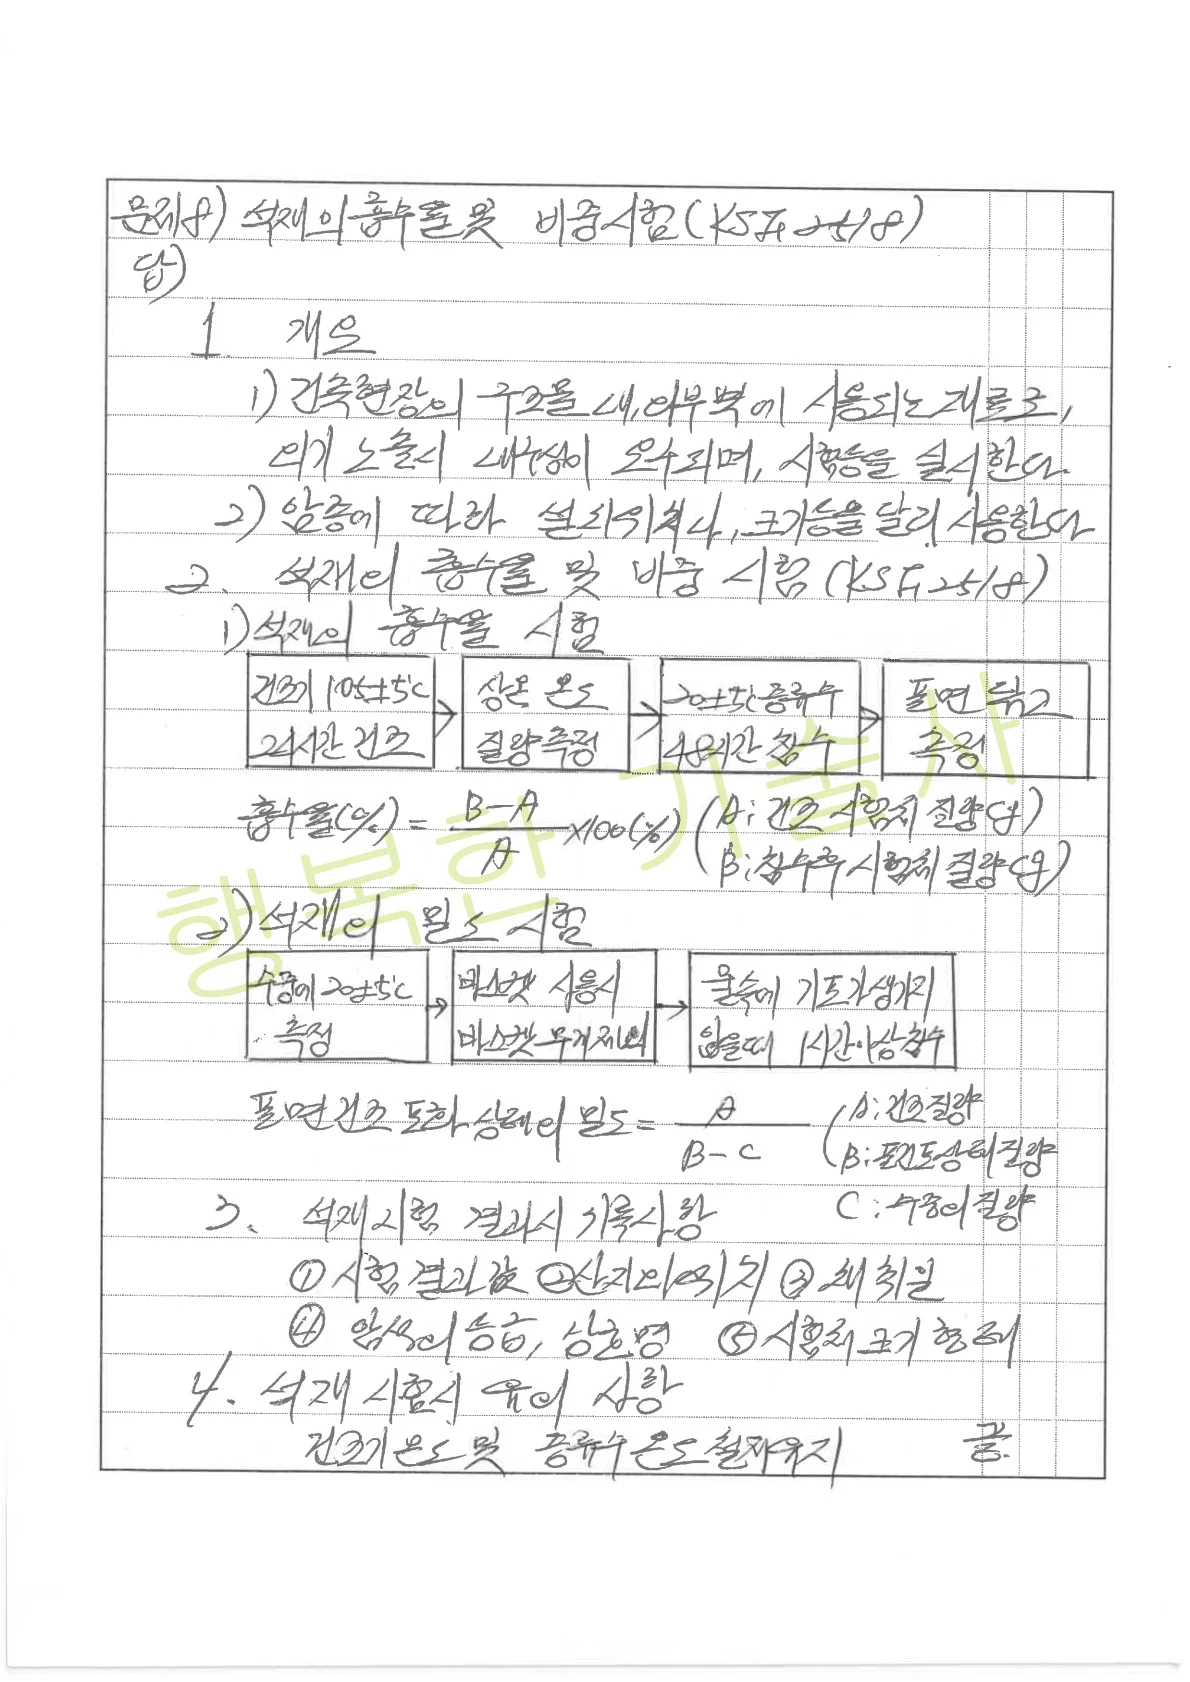 문제8) 석재의 흡수율 및 비중시험(KS F 2518)
답)
1. 개요
1) 건축현장의 구조물 내,외부벽에 사용되는 재료로,
외기 노출시 내구성이 요구되며, 시험등을 실시한다.
2) 암종에 따라 설치위치나, 크기등을 달리 사용한다
2. 석재의 흡수율 및 비중 시험(KS F 2518)
1) 석재의 흡수율 시험
건조기 105±5℃ 24시간 건조 → 상온 온도 질량측정 → 20±5℃증류수 48시간 침수 → 표면 닦고 측정
흡수율(%) = B-A / A ×100(%) (A: 건조 시험체 질량(g)
B: 침수후 시험체 질량(g))
2) 석재의 밀도 시험
수중에 20±5℃ 측정 → 바스켓 사용시 바스켓 무게제외 → 물속에 기포가생기지 않을때 1시간이상침수
표면건조 포화 상태의 밀도 = A / B-C (A: 건조질량
B: 표건포상태질량
C: 수중의 질량
3. 석재시험 결과시 기록사항
① 시험결과값 ② 산지의위치 ③ 채취일
④ 암석의등급, 상호명 ⑤ 시험체크기 형태
4. 석재 시험시 유의 사항
건조기온도 및 증류수온도 철저유지 끝.
행복한 기술사